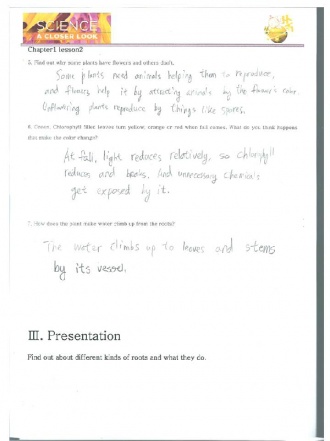 SCIENCE
A CLOSER LOOK
Chapter1 lesson2
5. Find out why some plants have flowers and others don't.
Some plants need animals helping them to reproduce,
and flowers help it by attracting animals by the flower's color.
plants reproduce by things like spores.
6. Green, Chlorophyll filled leaves turn yellow, orange or red when fall comes. What do you think happens
that make the color change?
At fall, light reduces relatively, so chlorophyll
reduces and breaks. And unnecessary chemicals
get exposed by it.
7. How does the plant make water climb up from the roots?
The water climbs up to leaves and stems
by its vessel.
III. Presentation
Find out about different kinds of roots and what they do.